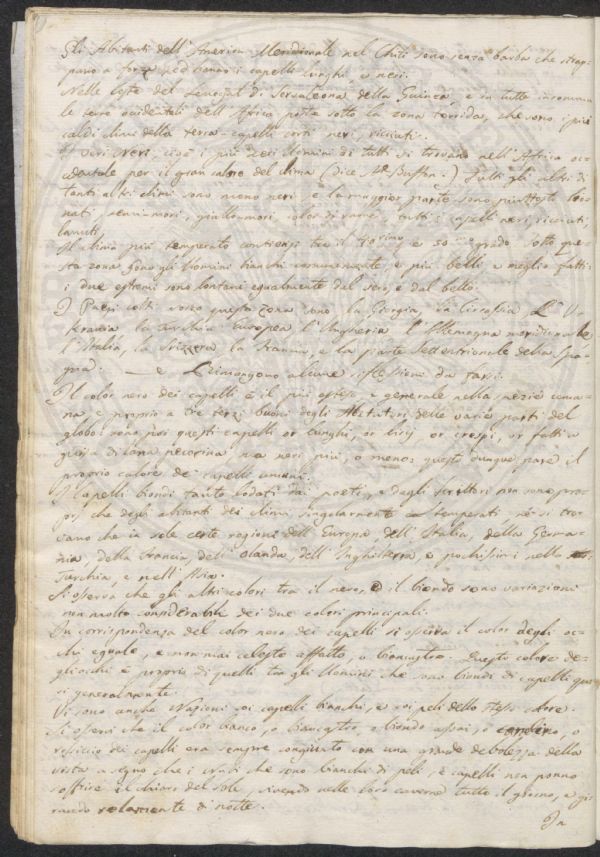 Gli Abitanti dell'America Meridionale nel Chili sono senza barba che strap-
pano a forza, ed hanno i capelli lunghi, e neri.
Nelle coste del Senegal di Serraleona della Guinea, e in tutte insomma
le terre occidentali dell'Africa poste sotto la zona torrida, che sono i più
caldi climi della terra capelli corti neri, ricciuti.
I veri Neri, cioè i più neri Uomini di tutti si trovano nell'Africa oc-
cidentale per il gran calore del clima (dice Mr Buffon.) Tutti gli altri di
tanti altri climi sono meno neri, e la maggior parte sono piuttosto bron-
zati, color di rame, tutti capelli neri ricciuti,
lanuti,
Il clima più temperato contiensi tra il 40 e 50 grado sotto que-
sta zona sono gli Uomini bianchi comunemente, e più belli e meglio fatti
i due estremi sono lontani egualmente dal vero, e dal bello.
I Paesi colti verso questa zona sono la Giorgia, la Circassia L'U-
krania la Turchia Europea l'Ungheria l'Allemagna meridionale
l'Italia, la Svizzera la Francia, e la parte Settentrionale della Spa-
gna. — e Ci rimangono alcune riflessioni da farsi.
Il color nero dei capelli è il più esteso, e generale nella spezie uma-
na e proprio a tre terzi buoni degli Abitatori delle varie parti del
globo: sono poi questi capelli or lunghi, or lisci or crespi, or fatti a
guisa di lana pecorina ma neri più, o meno questo dunque pare il
proprio colore de' capelli umani.
I Capelli biondi tanto lodati dai poeti, e dagli scrittori non sono pro-
prj che degli abitanti dei climi singolarmente temperati nè si tro-
vano che in sole certe regioni dell'Europa, dell'Italia, della Germa-
nia, della Francia, dell'Olanda, dell'Inghilterra, e pochissimi nella
Turchia, e nell'Asia.
Si osserva che gli altri colori tra il nero, e il biondo sono variazioni
non molto considerabili dei due colori principali.
In corrispondenza del color nero dei capelli si osserva il color degli oc-
chi eguale, e non mai celeste affatto, o biancastro. Questo colore de-
gli occhi è proprio di quelli tra gli Uomini che sono biondi di capelli qua-
si generalmente.
Vi sono anche Nazioni coi capelli bianchi, e coi peli dello stesso colore.
Si osservi che il color bianco, o biancastro, o biondo assai, o
rossiccio dei capelli era sempre congiunto con una grande debolezza della
vista a segno che i che sono bianchi di peli, e capelli non ponno
soffrire il chiaro del sole, vivendo nelle loro caverne tutto il giorno, e gi-
rando solamente di notte.
In